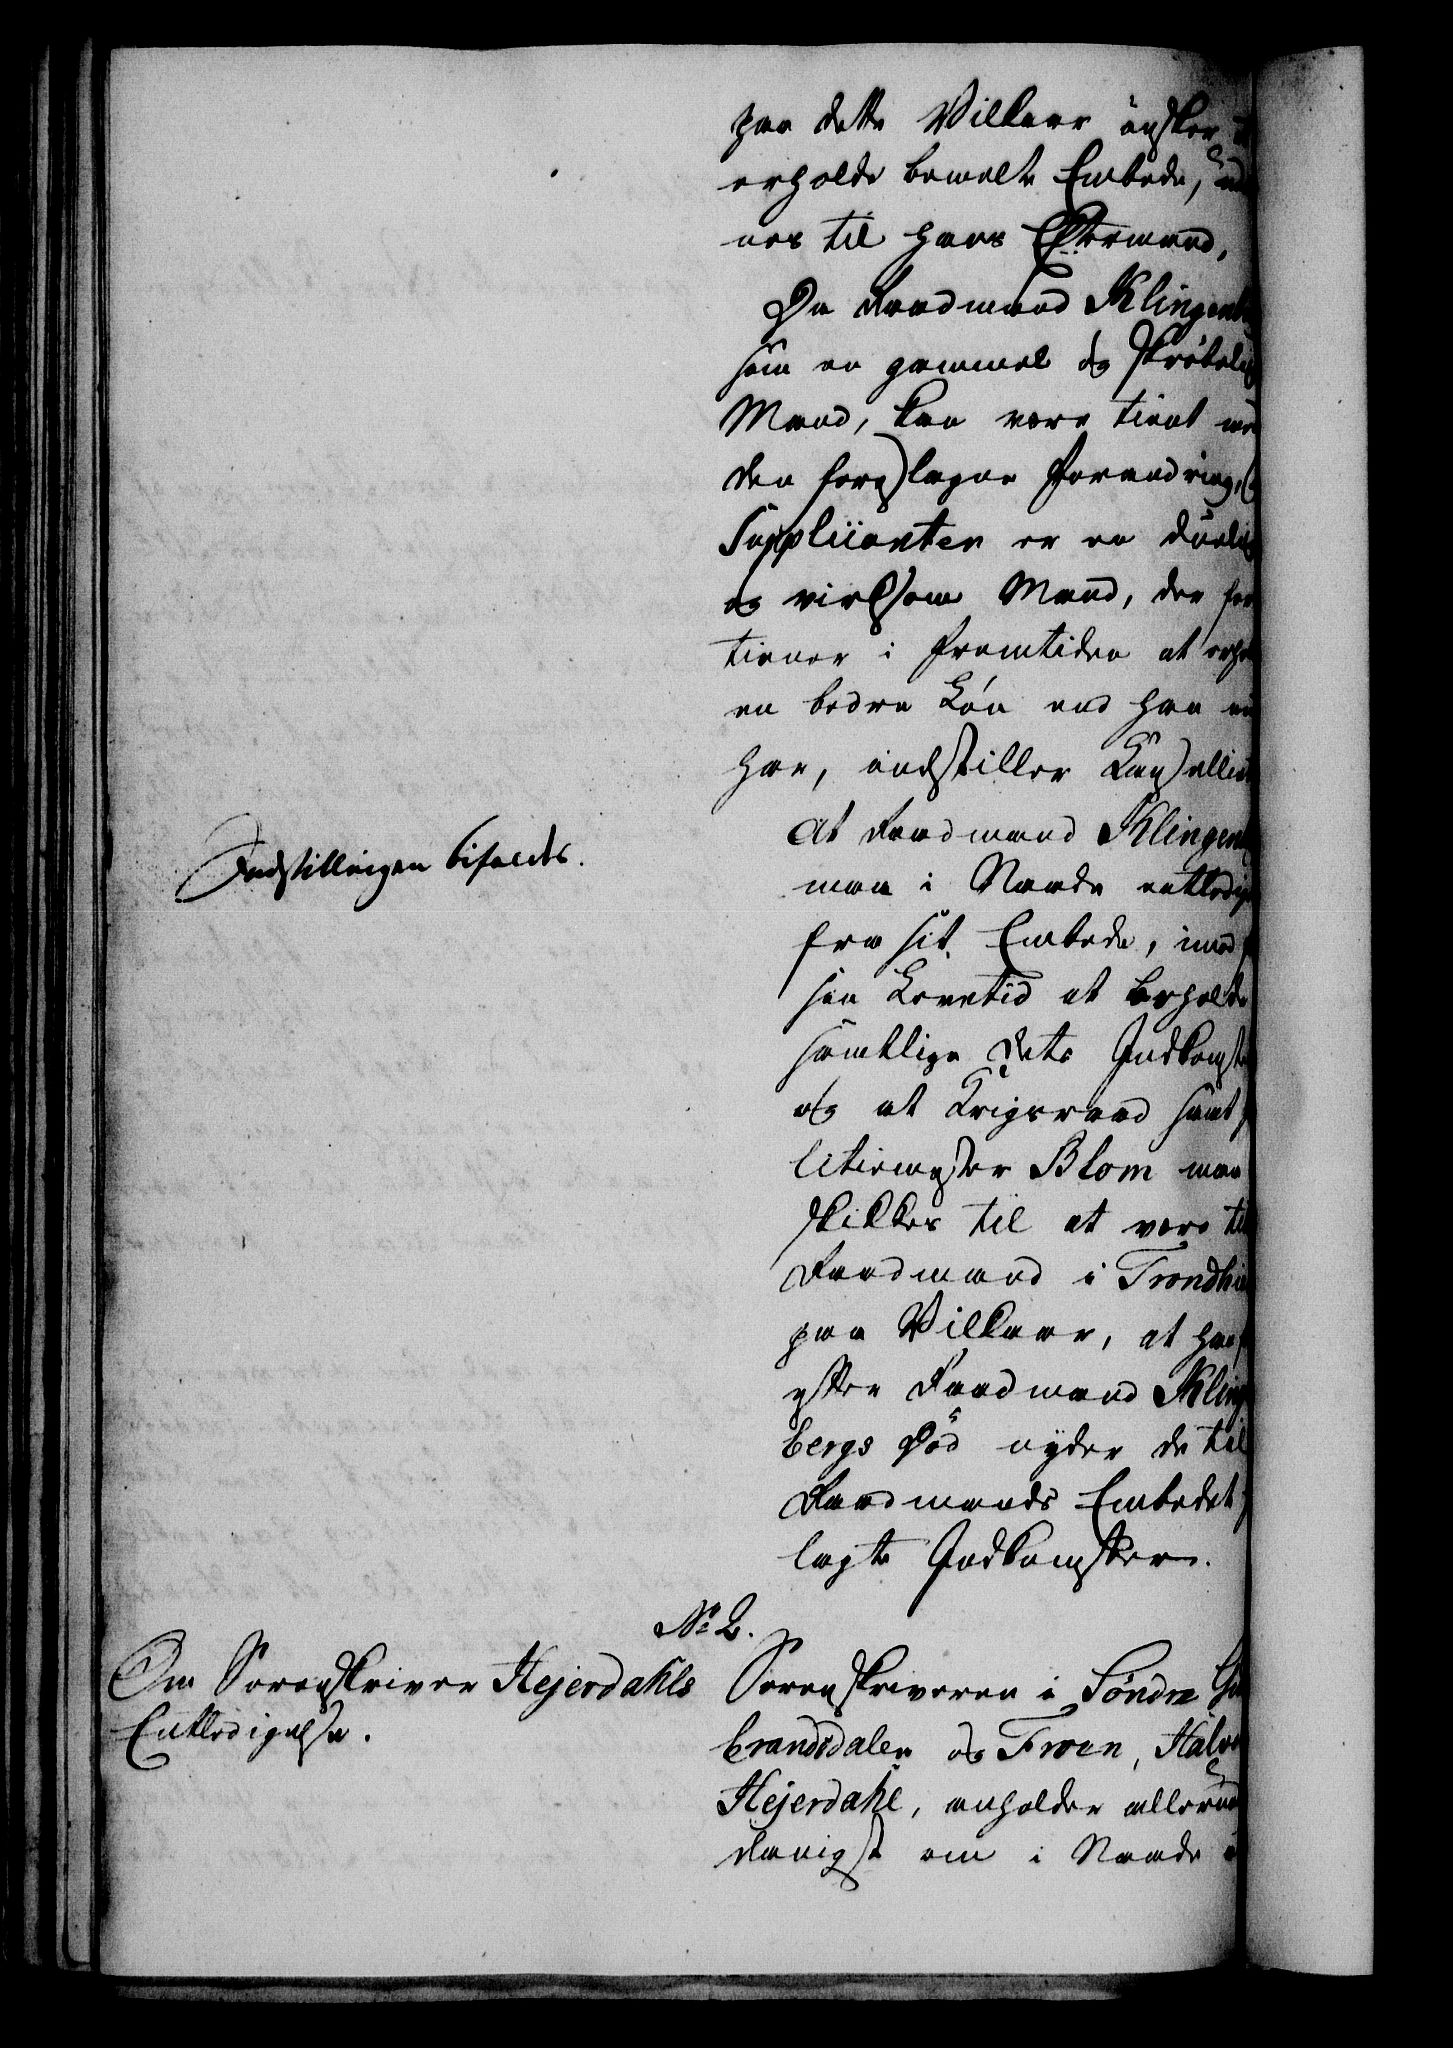 paa dette Vilkaar ønsker
erholde bemelte Embede,
nes til hans Eftermand.
Da Raadmand Klingenb
som en gammel og skrøbelig
Mand, kan være tient med
den foreslagne Forandring,
Supplicanten er en duelig
og virksom Mand, der for
tiener i Fremtiden at erho
en bedre Løn end han nu
har, indstiller Cancelliet
At Raadmand Klingen
maa i Naade entledig
fra sit Embede, imod
sin Levetid at beholde
samtlige dets Indkomste
og at Krigsraad samt
litiemester Blom maa
skikkes til at være til
Raadmand i Trondhie
paa Vilkaar, at han
efter Raadmand Kling
bergs Død nyder de til
Raadmands Embedet
lagte Indkomster.
Indstillingen bifaldes.
No 2.
Om Sorenskriver Hejerdahls
Entledigelse.
Sorenskriveren i Søndre Gu
brandsdalen og Froen, Halvo
Hejerdahl, anholder allerun
danigst om i Naade